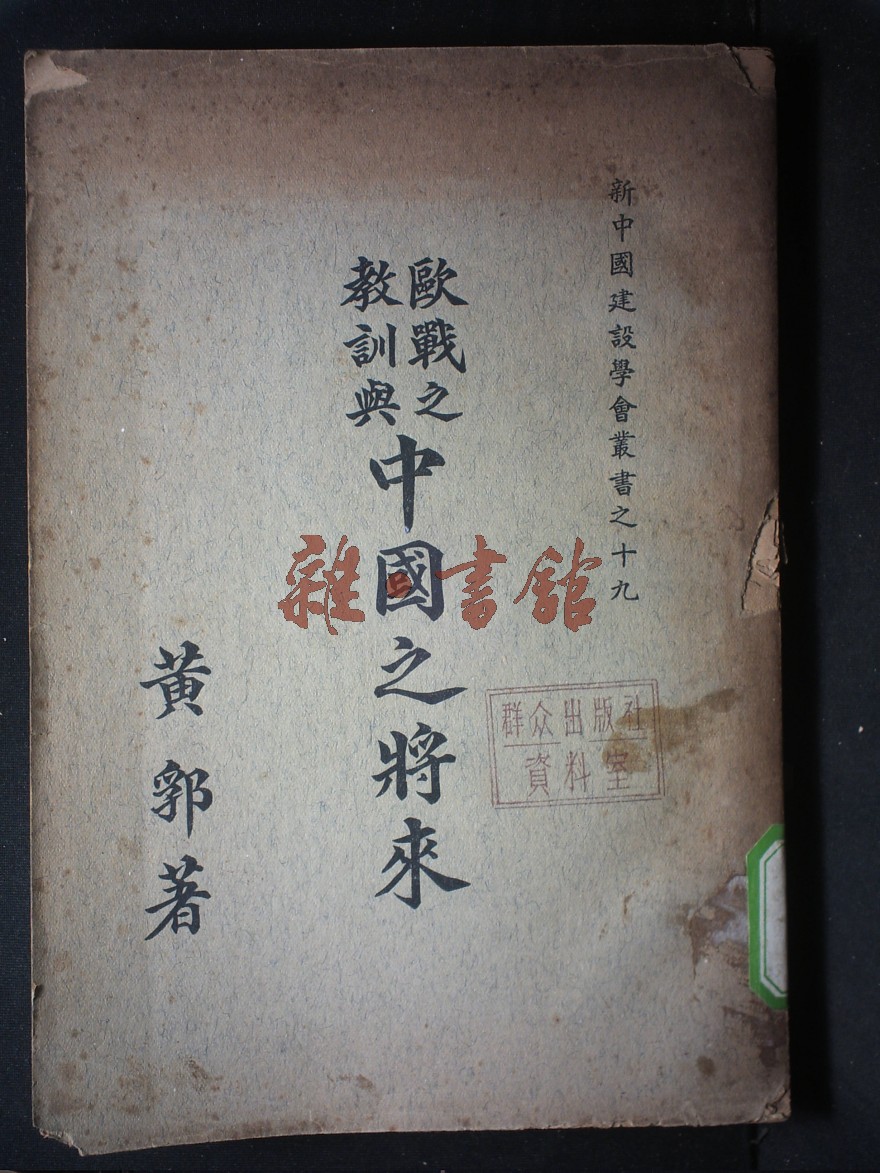 新中國建設學會叢書之十九
歐戰之
教訓與
中國之將來
黃郛著
群众出版社
資料室
雜書館